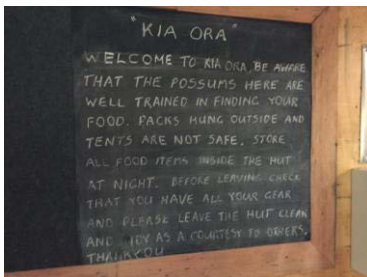 "KIA ORA"
WELCOME TO KIA ORA, BE AWARE
THAT THE POSSUMS HERE ARE
WELL TRAINED IN FINDING YOUR
FOOD. PACKS HUNG OUTSIDE AND
TENTS ARE NOT SAFE. STORE
ALL FOOD ITEMS INSIDE THE HUT
AT NIGHT. BEFORE LEAVING CHECK
THAT YOU HAVE ALL YOUR GEAR
AND PLEASE LEAVE THE HUT CLEAN
AND TIDY AS A COURTESY TO OTHERS.
THANKYOU